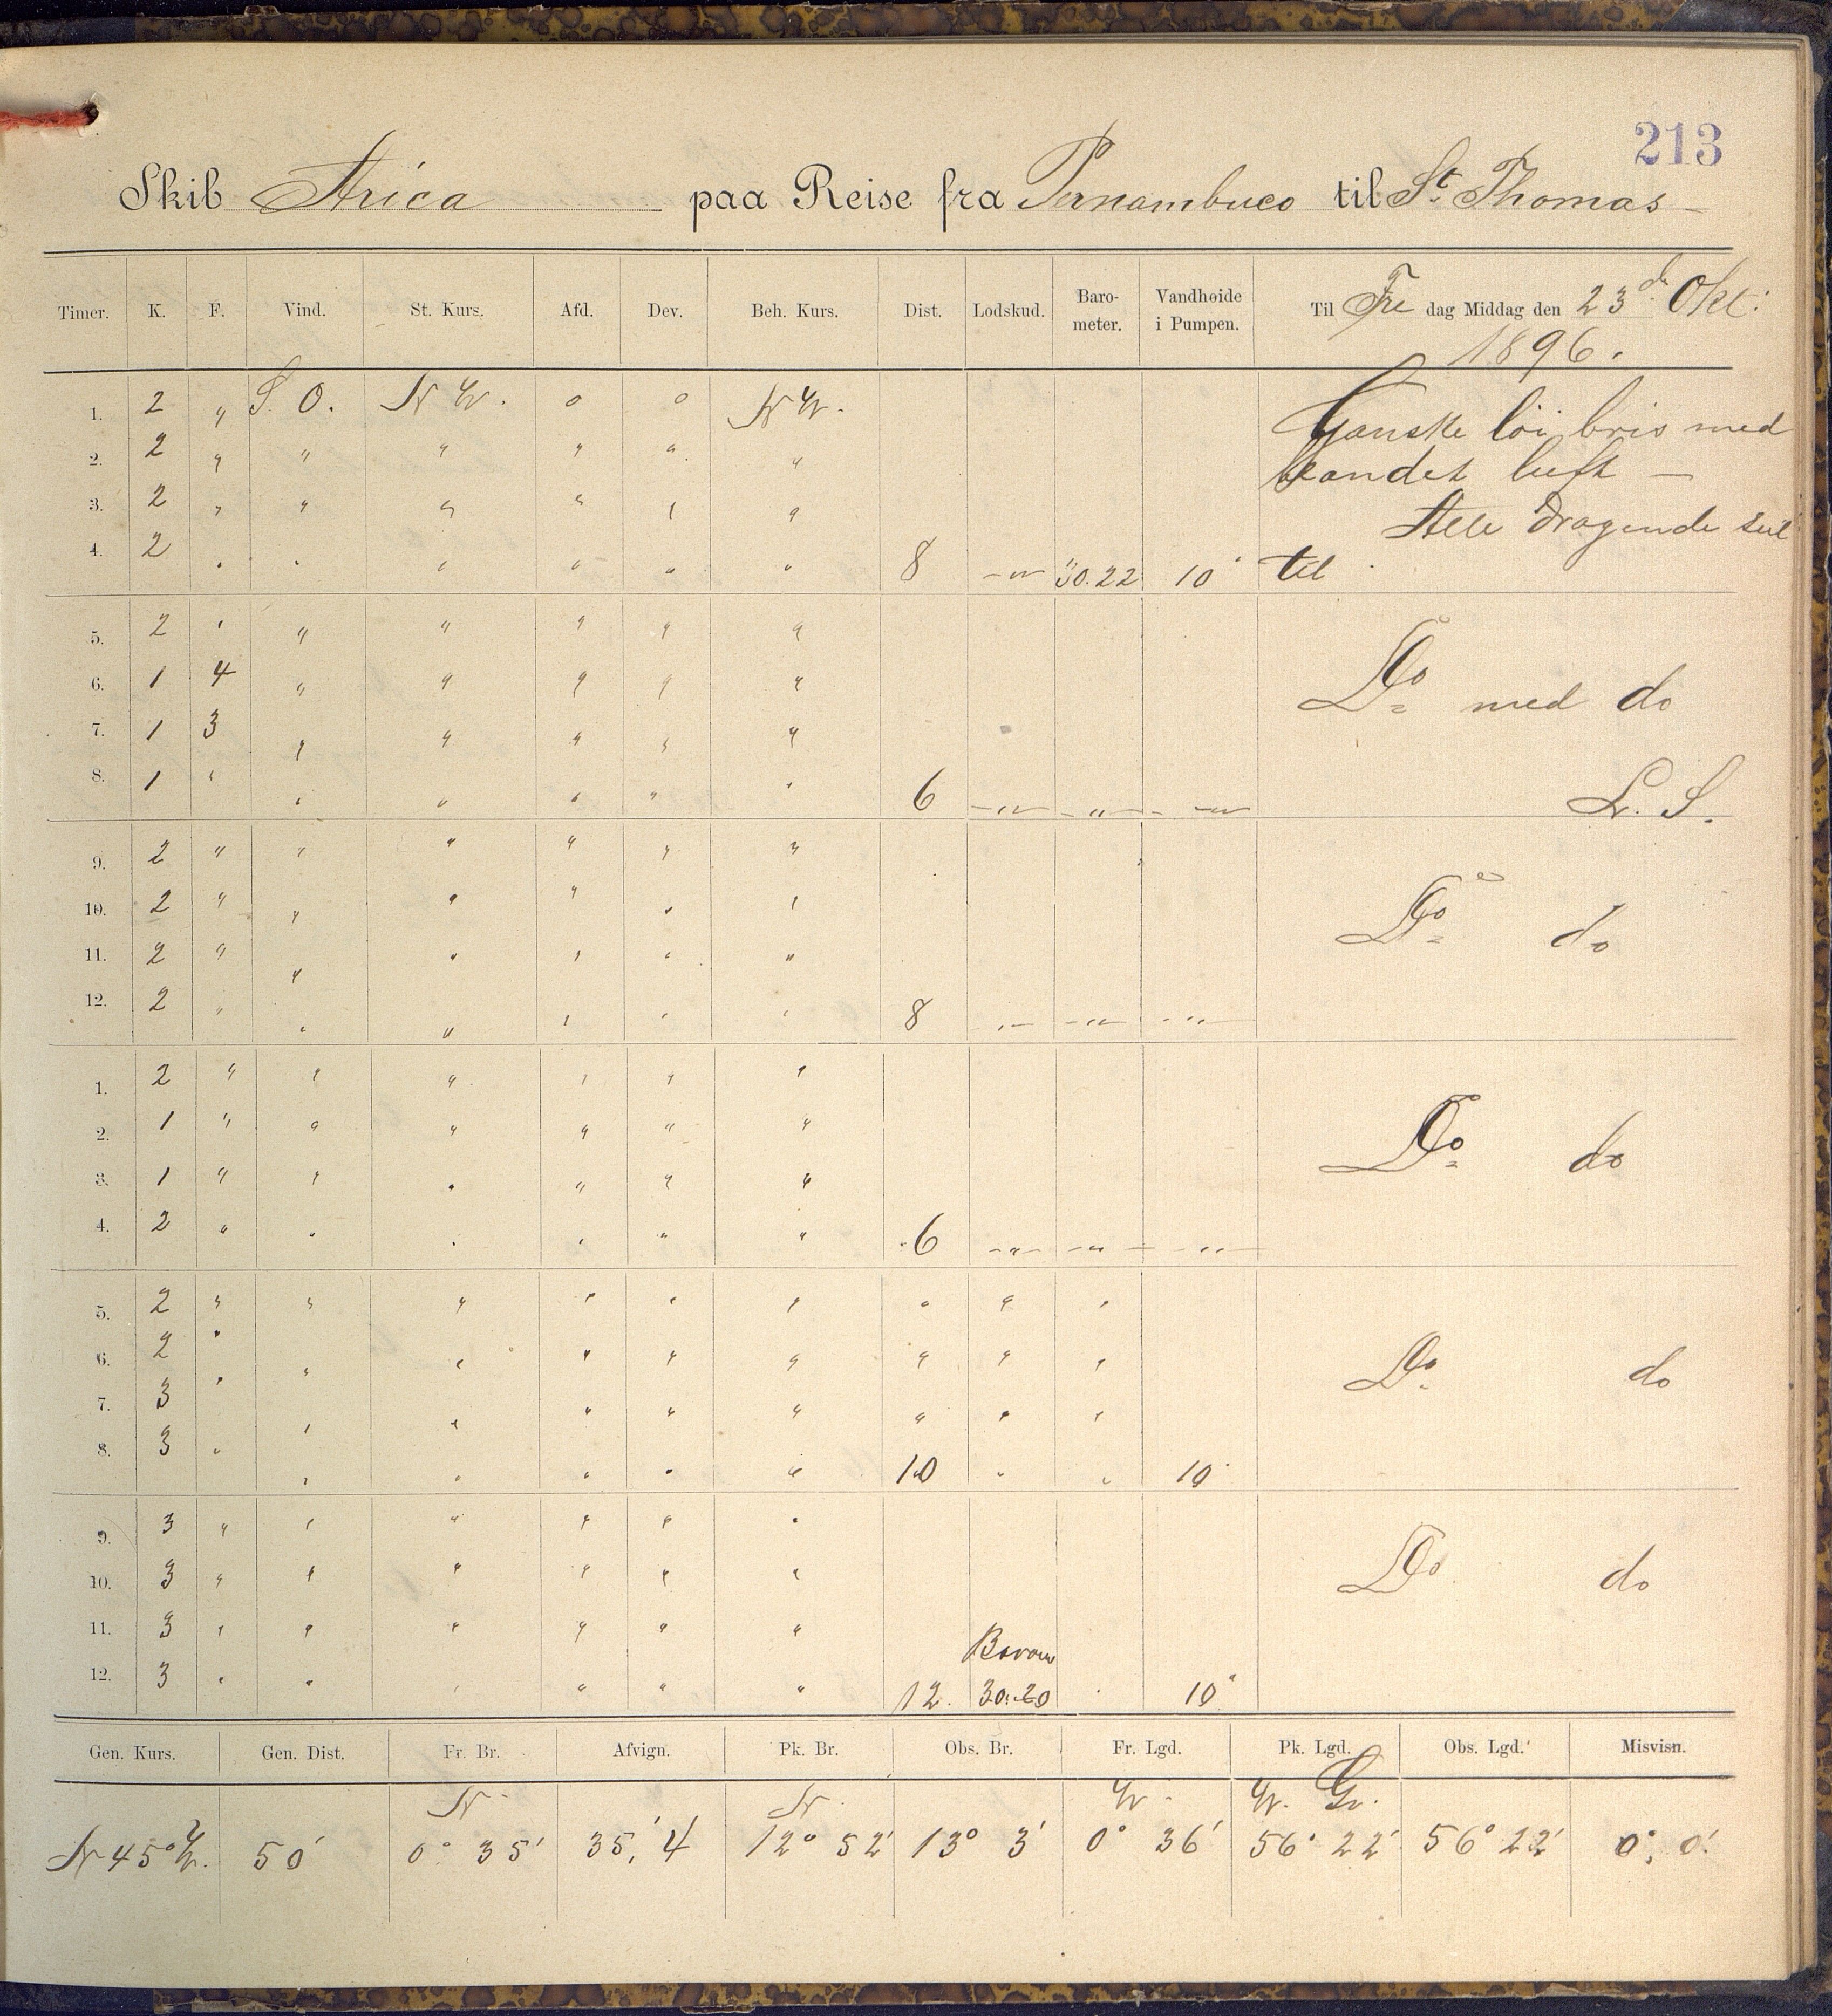 213
Skib Arica paa Reise fra Pernambuco til St. Thomas
Timer. K. F. Vind. St. Kurs. Afd. Dev. Beh. Kurs. Dist. Lodskud. Baro-meter. Vandhøide i Pumpen. Til Fre dag Middag den 23de Okt: 1896.
1. 2 " S. O. N W. 0 0 N W. Ganske löi bris med
2. 2 " " " " " " landet luft —
3. 2 " " " " " " Alle dragende seil
4. 2 " " " " " " 8 —"— 30.22 10" til
5. 2 " " " " " "
6. 1 4 " " " " " Do med do
7. 1 3 " " " " "
8. 1 " " " " " " 6 —"— —"— —"— L. S.
9. 2 " " " " " "
10. 2 " " " " " " Do do
11. 2 " " " " " "
12. 2 " " " " " " 8 —"— —"— —"—
1. 2 " " " " " "
2. 1 " " " " " " Do do
3. 1 " " " " " "
4. 2 " " " " " " 6 —"— —"— —"—
5. 2 " " " " " " " " "
6. 2 " " " " " " " " " Do do
7. 3 " " " " " " " " "
8. 3 " " " " " " 10 " " 10"
9. 3 " " " " " "
10. 3 " " " " " " Do do
11. 3 " " " " " " Barom
12. 3 " " " " " " 12. 30.20 " 10"
Gen. Kurs. Gen. Dist. Fr. Br. Afvign. Pk. Br. Obs. Br. Fr. Lgd. Pk. Lgd. Obs. Lgd. Misvisn.
N N W. W. Gr.
N 45° W. 50' 0° 35' 35,'4 12° 52' 13° 3' 0° 36' 56° 22' 56° 22' 0°, 0'